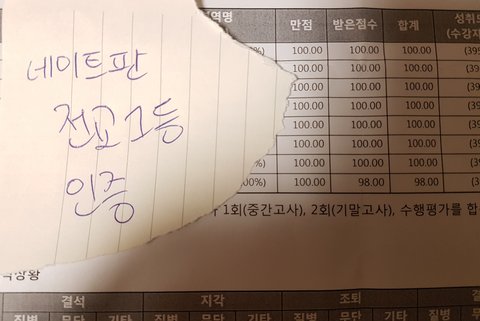 네이트판
전교 1등
인증
역명 만점 받은점수 합계 성취도
(수강자
%) 100.00 100.00 100.00 (395
100.00 100.00 100.00 (39
100.00 100.00 100.00 (39
100.00 100.00 100.00 (39
100.00 100.00 100.00 (39
100.00 100.00 100.00 (3
%) 100.00 100.00 100.00 (3
00%) 100.00 98.00 98.00 (3
1회(중간고사), 2회(기말고사), 수행평가를 합
상황
결석 지각 조퇴 결
질병 무단 기타 질병 무단 기타 질병 무단 기타 질병 무